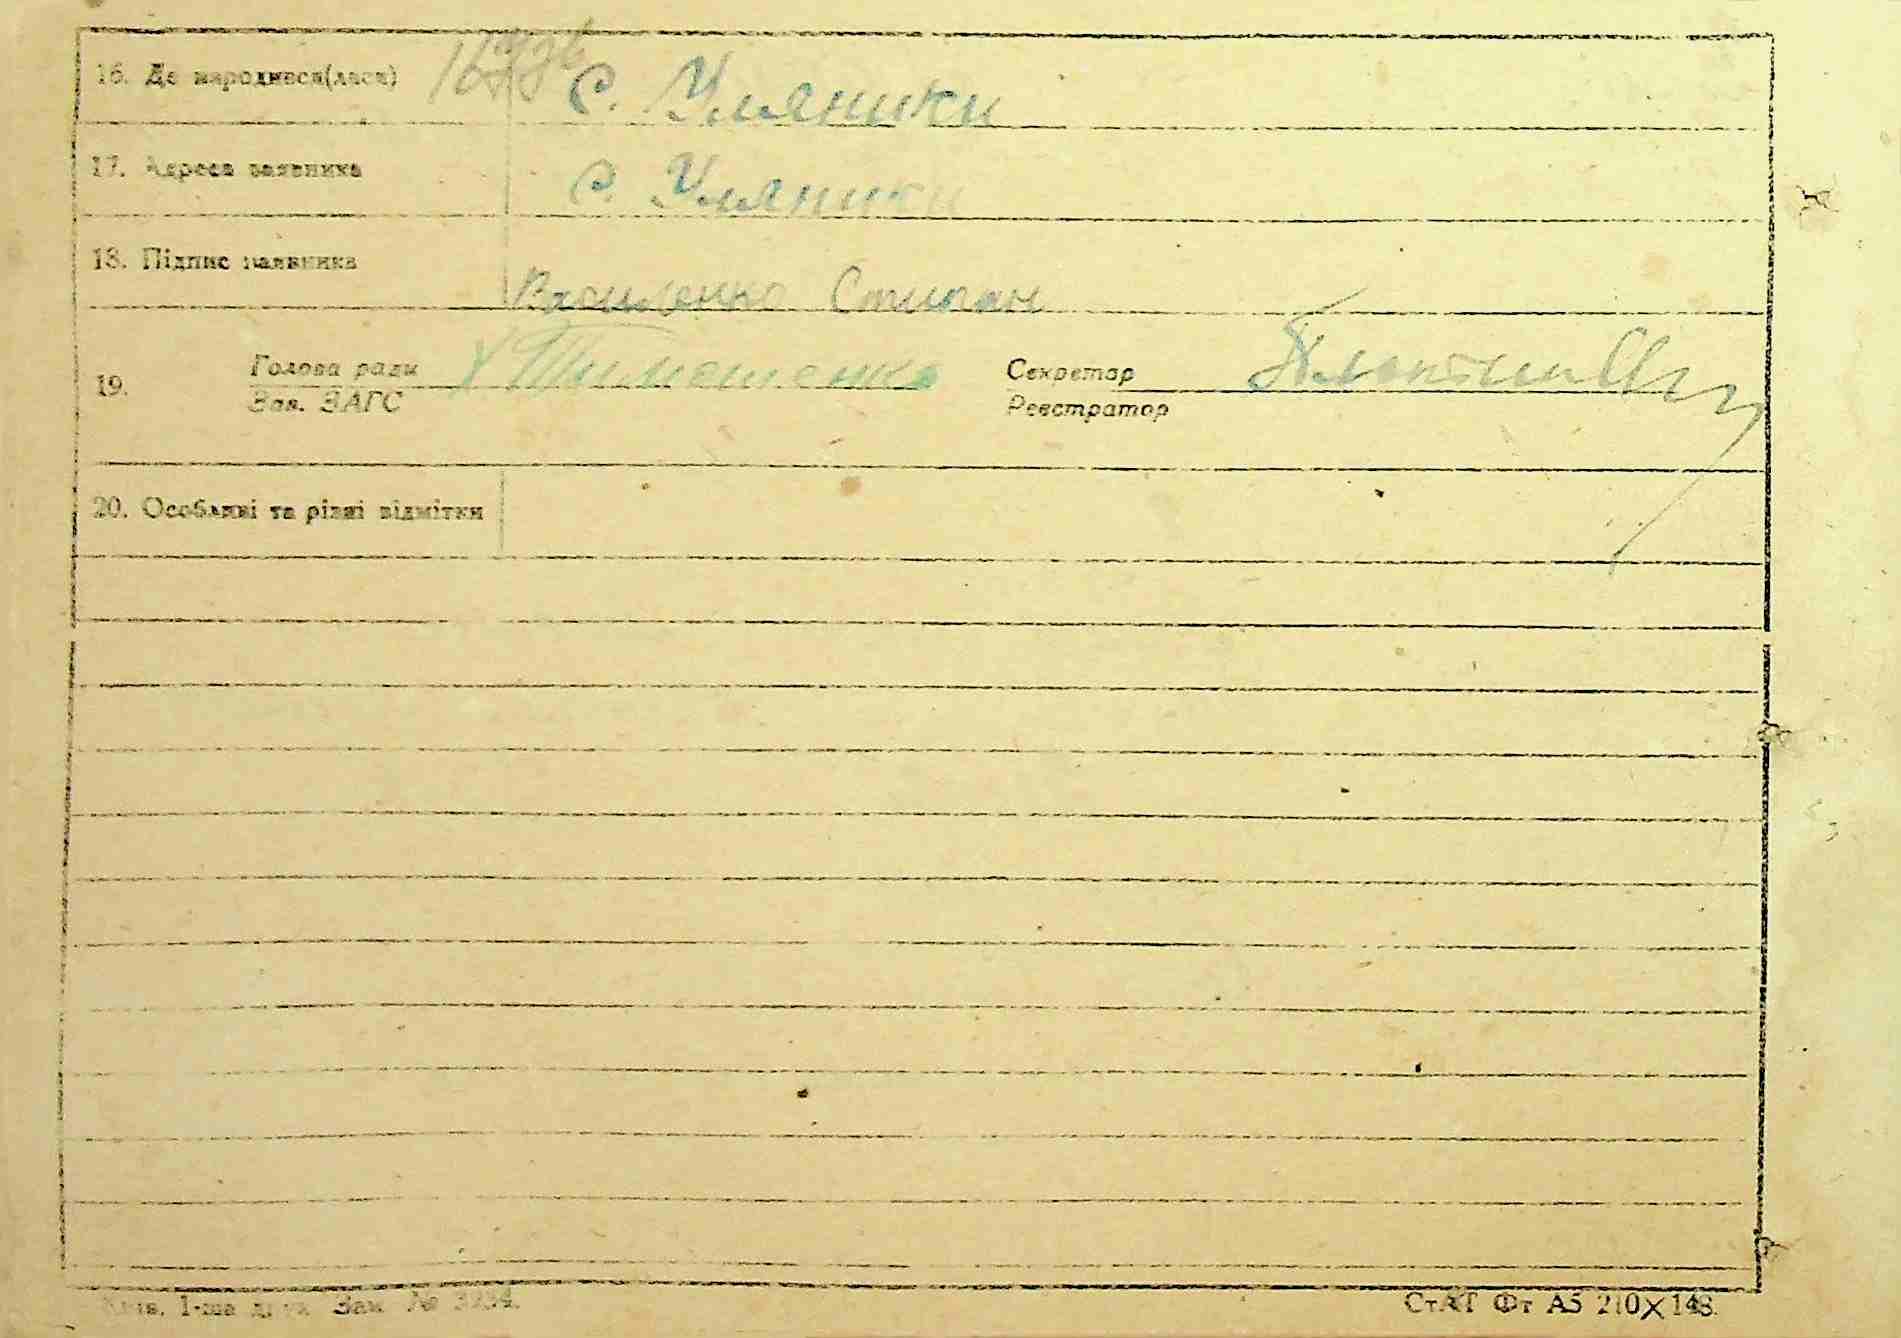 16. Де народився(лася) с. Уляники
17. Адреса заявника с. Уляники
18. Підпис заявника Василенко Степан
19. Голова ради Тимошенко Секретар
Зав. ЗАГС Реєстратор
20. Особливі та різні відмітки
1-ша друк. Зам. № 3234.
СтАТ Фт А5 210×148.